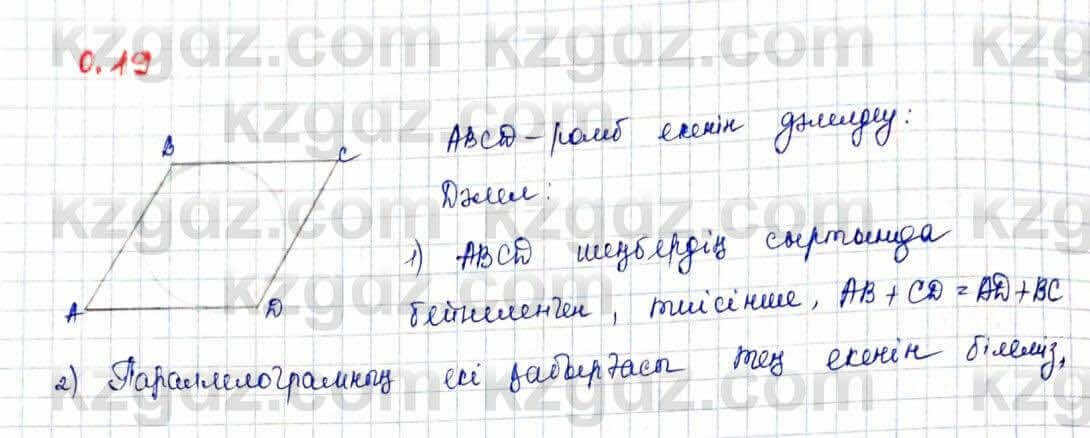 0.19
ABCD - ромб екенін дәлелдеу:
B
C
Дәлел:
1) ABCD шеңбердің сыртында
A
D
бейнеленген, тиісінше, AB + CD = AD + BC
2) Параллелограмның екі қабырғасы тең екенін білеміз,